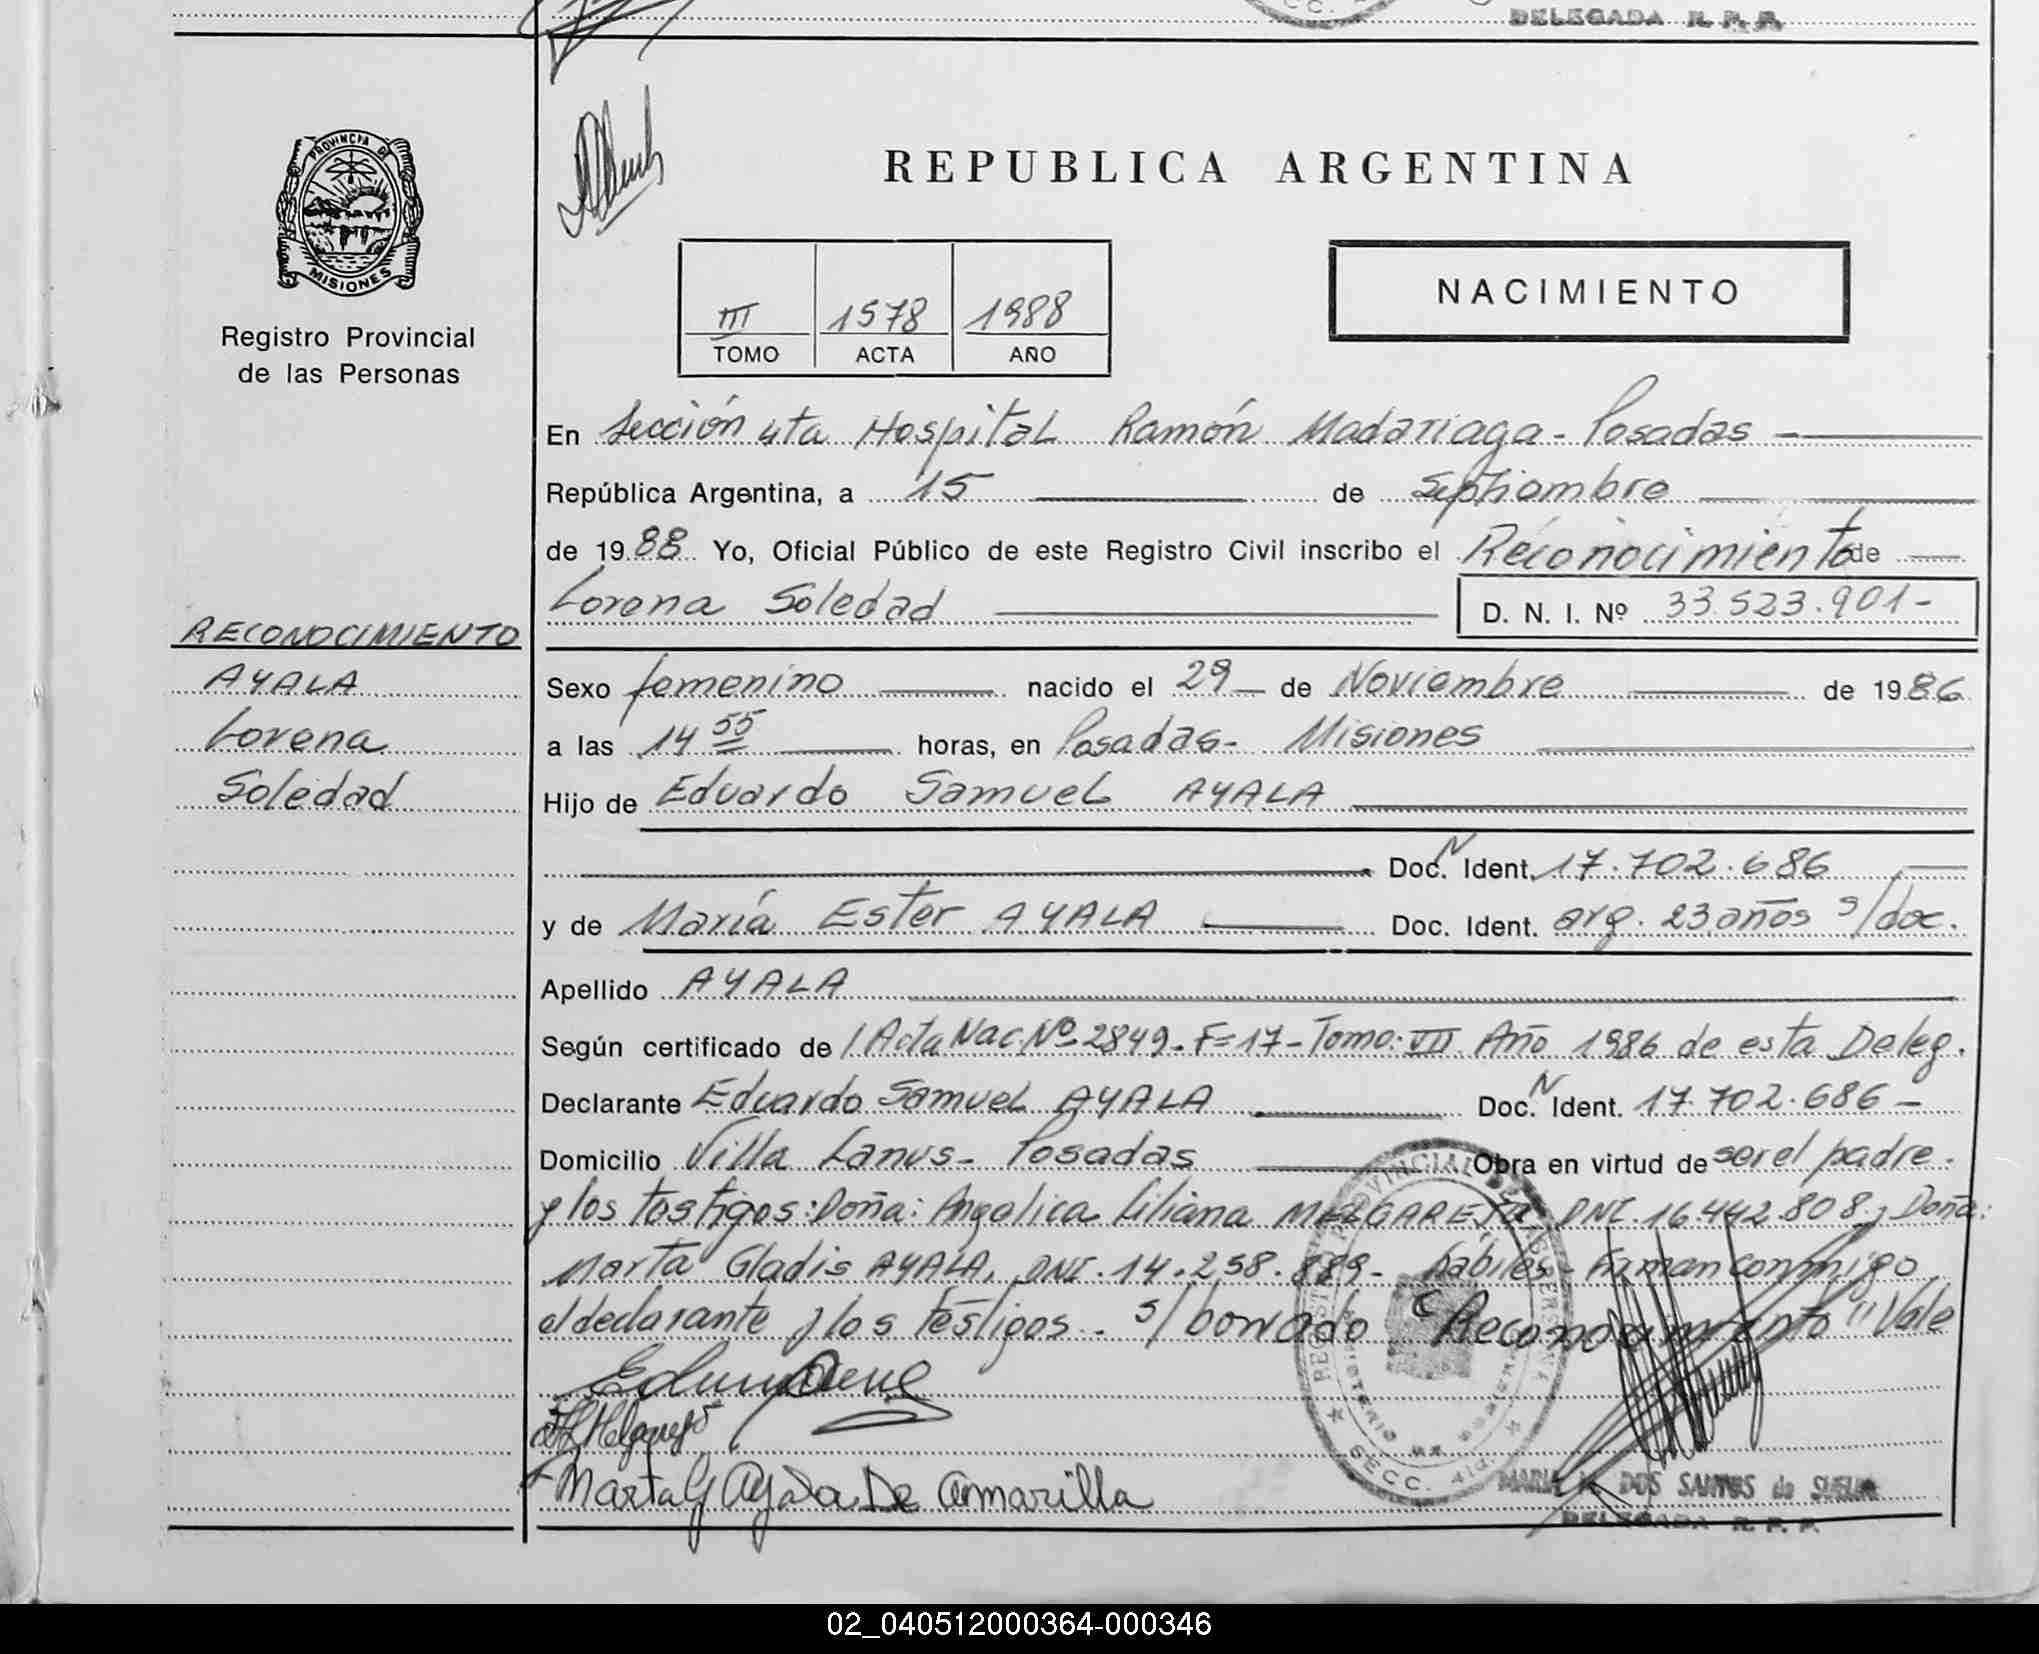 DELEGADA R. P. P.
PROVINCIA DE
MISIONES
Registro Provincial
de las Personas
REPUBLICA ARGENTINA
III 1578 1988
TOMO ACTA AÑO
NACIMIENTO
En Sección 4ta Hospital Ramón Madariaga - Posadas -
República Argentina, a 15 de Septiembre
de 1988 Yo, Oficial Público de este Registro Civil inscribo el Reconocimiento de
Lorena Soledad D. N. I. Nº 33.523.901-
RECONOCIMIENTO
AYALA
Lorena
Soledad
Sexo femenino nacido el 29 de Noviembre de 1986
a las 14 55 horas, en Posadas- Misiones
Hijo de Eduardo Samuel AYALA
Doc. N Ident. 17.702.686
y de María Ester AYALA Doc. Ident. arg. 23 años s/doc.
Apellido AYALA
Según certificado de / Acta Nac. Nº 2849. F=17-Tomo: VII Año 1986 de esta Deleg.
Declarante Eduardo Samuel AYALA Doc. N Ident. 17.702.686 -
Domicilio Villa Lanus- Posadas Obra en virtud de ser el padre.
y los testigos: Doña: Angelica Liliana MELGAREJO, DNI. 16.442.808, Doña:
Marta Gladis AYALA, DNI. 14.258.889- habiles- Firman conmigo
el declarante y los testigos.. s/borrado "Reconocimiento" Vale
Marta G Ayala De amarilla
SECC. 4ta.
MARIA DOS SANTOS de
DELEGADA R. P. P.
02_040512000364-000346